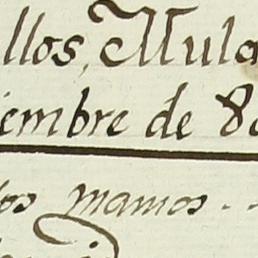 llos, Mula
iembre de 80
tos mamos. -